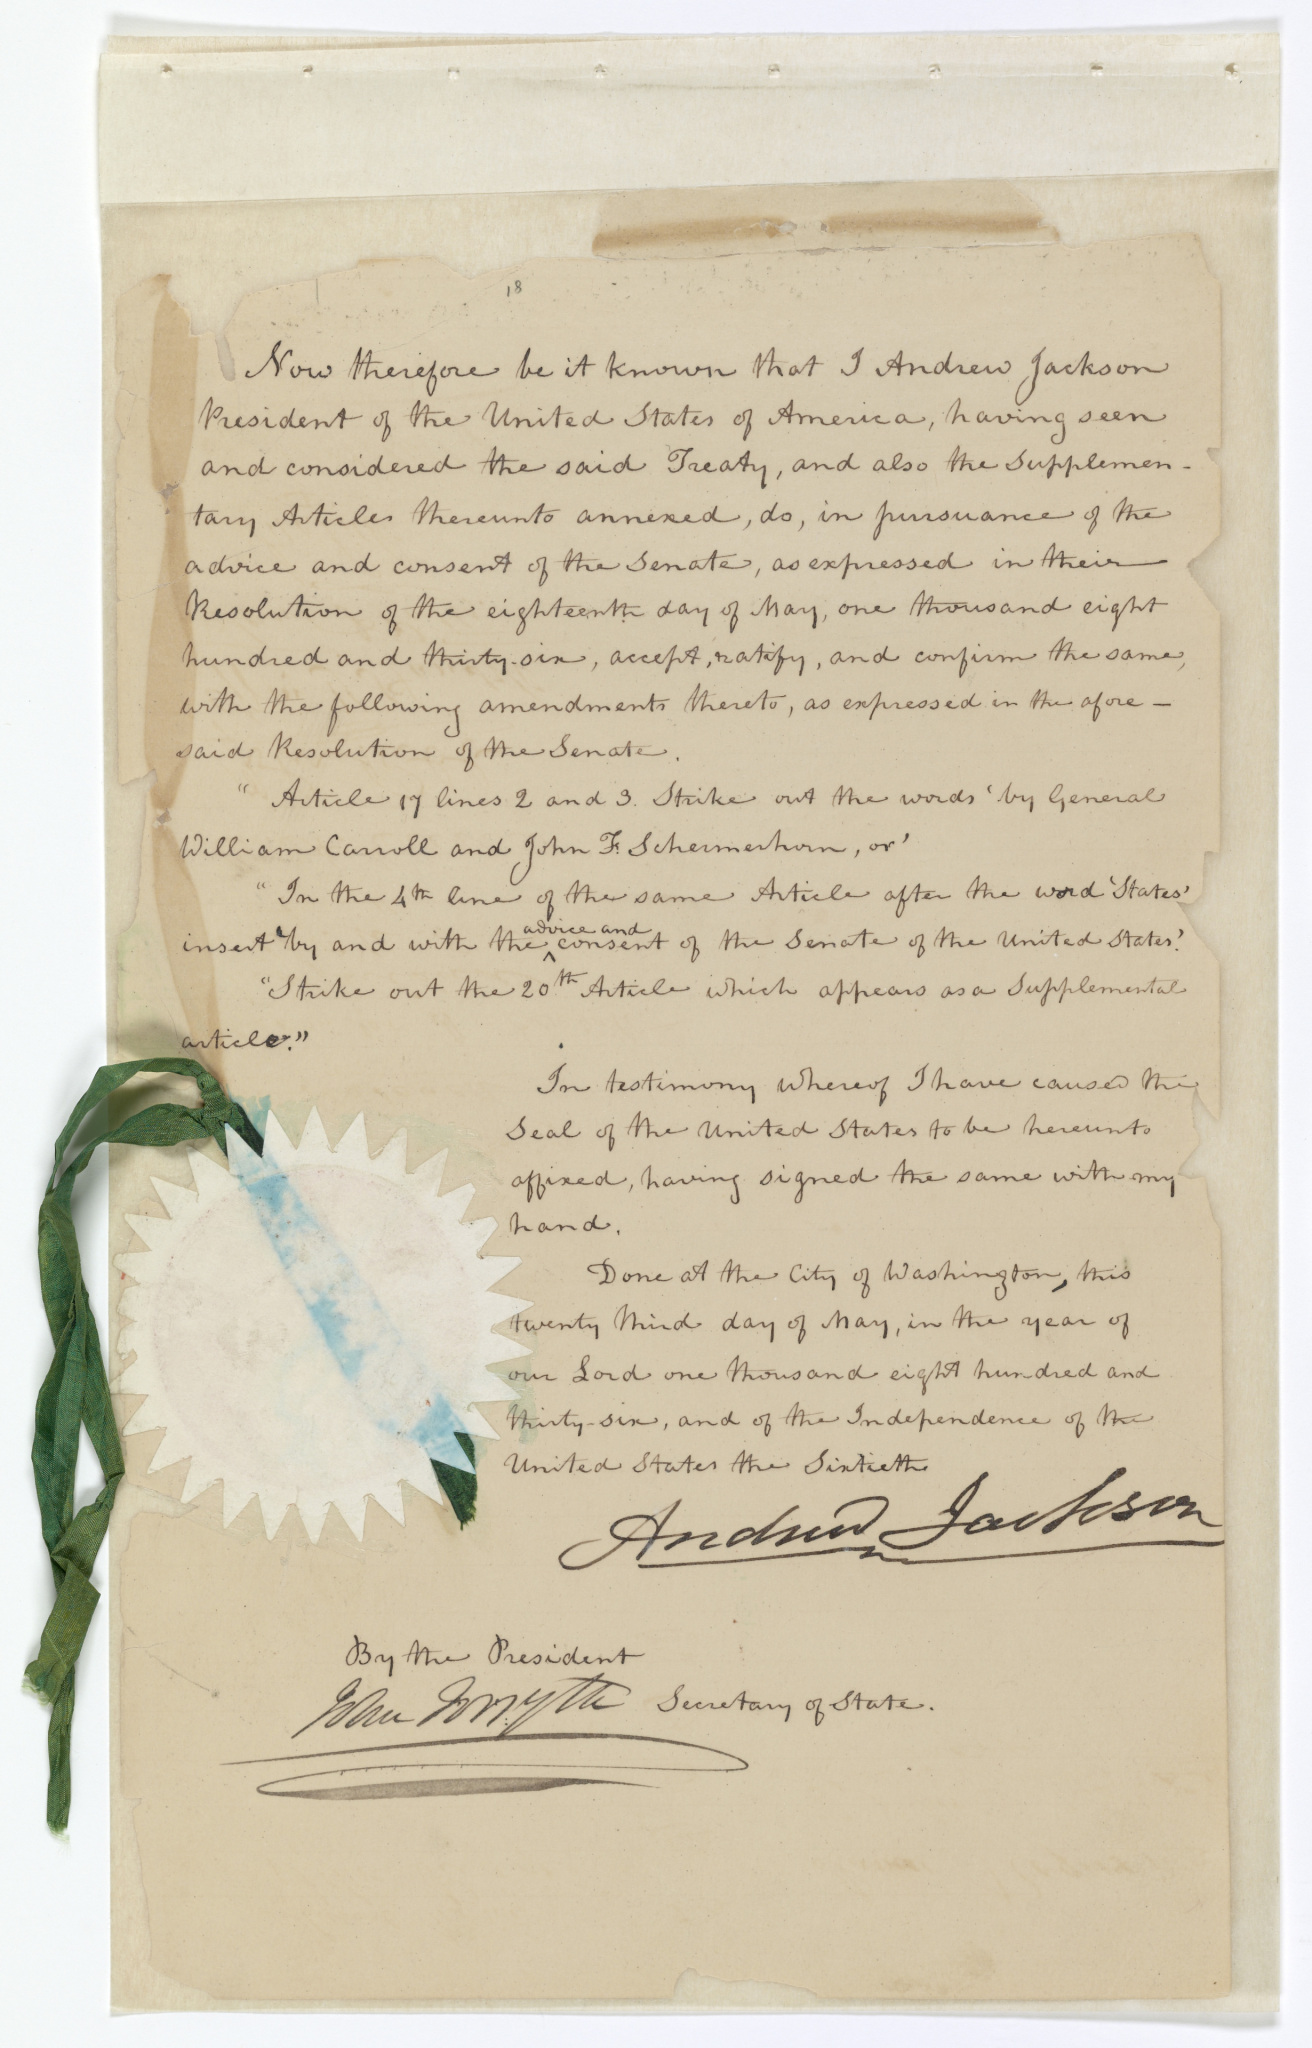 18
Now therefore be it known that I Andrew Jackson
President of the United States of America, having seen
and considered the said Treaty, and also the Supplemen-
tary Articles thereunto annexed, do, in pursuance of the
advice and consent of the Senate, as expressed in their
Resolution of the eighteenth day of May, one thousand eight
hundred and thirty-six, accept, ratify, and confirm the same,
with the following amendments thereto, as expressed in the afore-
said Resolution of the Senate.
" Article 17 lines 2 and 3. Strike out the words 'by General
William Carroll and John F. Schermerhorn, or'
" In the 4th line of the same Article after the word 'States'
insert 'by and with the advice and consent of the Senate of the United States.'
"Strike out the 20th Article which appears as a Supplemental
article."
In testimony whereof I have caused the
Seal of the United States to be hereunto
affixed, having signed the same with my
hand.
Done at the City of Washington, this
twenty third day of May, in the year of
our Lord one thousand eight hundred and
thirty-six, and of the Independence of the
United States the Sixtieth
Andrew Jackson
By the President
John Forsyth Secretary of State.